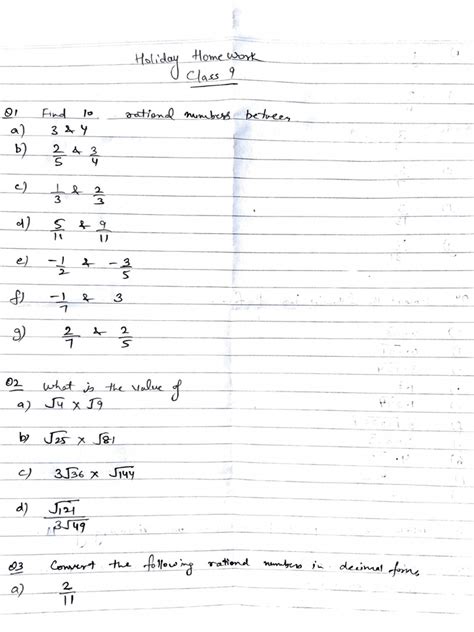 Holiday Homework
Class 9
Q1 Find 10 rational numbers between
a) 3 & 4
b) 2/5 & 3/4
c) 1/3 & 2/3
d) 5/11 & 9/11
e) -1/2 & -3/5
f) -1/7 & 3
g) 2/7 & 2/5
Q2 What is the value of
a) √4 × √9
b) √25 × √81
c) 3√36 × √144
d) √121/3√49
Q3 Convert the following rational numbers in decimal form
a) 2/11